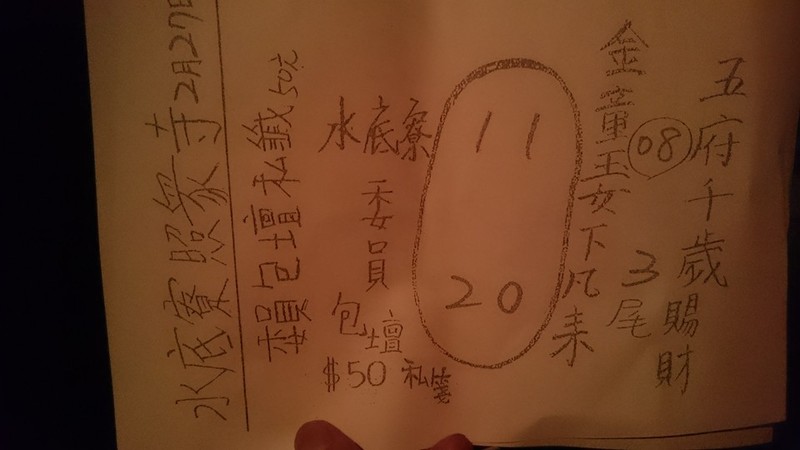 水底寮照衆寺2月27日
委員包壇私籤50元
五府千歲賜財
08
3尾
金童玉女下凡来
11
20
水底寮
委員
包壇
$50 私箋